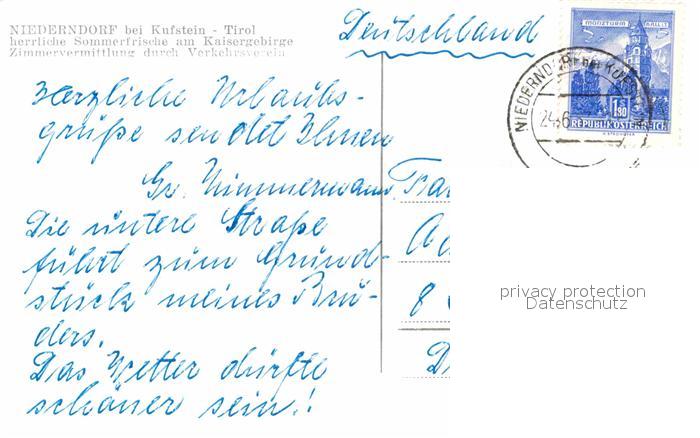 NIEDERNDORF bei Kufstein - Tirol
herrliche Sommerfrische am Kaisergebirge
Zimmervermittlung durch Verkehrsverein
Deutschland
MÜNZTURM HALL I.T.
1 S 80
REPUBLIK ÖSTERREICH
NIEDERNDORF bei KUFSTEIN
24.6
Herzliche Urlaubs-
grüße sendet Ihnen
Gr. Zimmermann,
Die untere Straße
führt zum Grund-
stück meines Bru-
ders.
Das Wetter dürfte
schöner sein!
privacy protection
Datenschutz